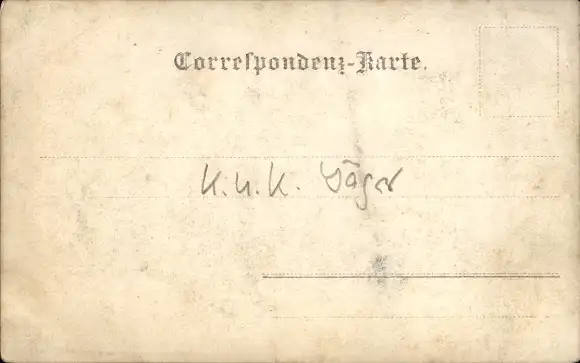 Correspondenz-Karte.
K.u.K. Jäger